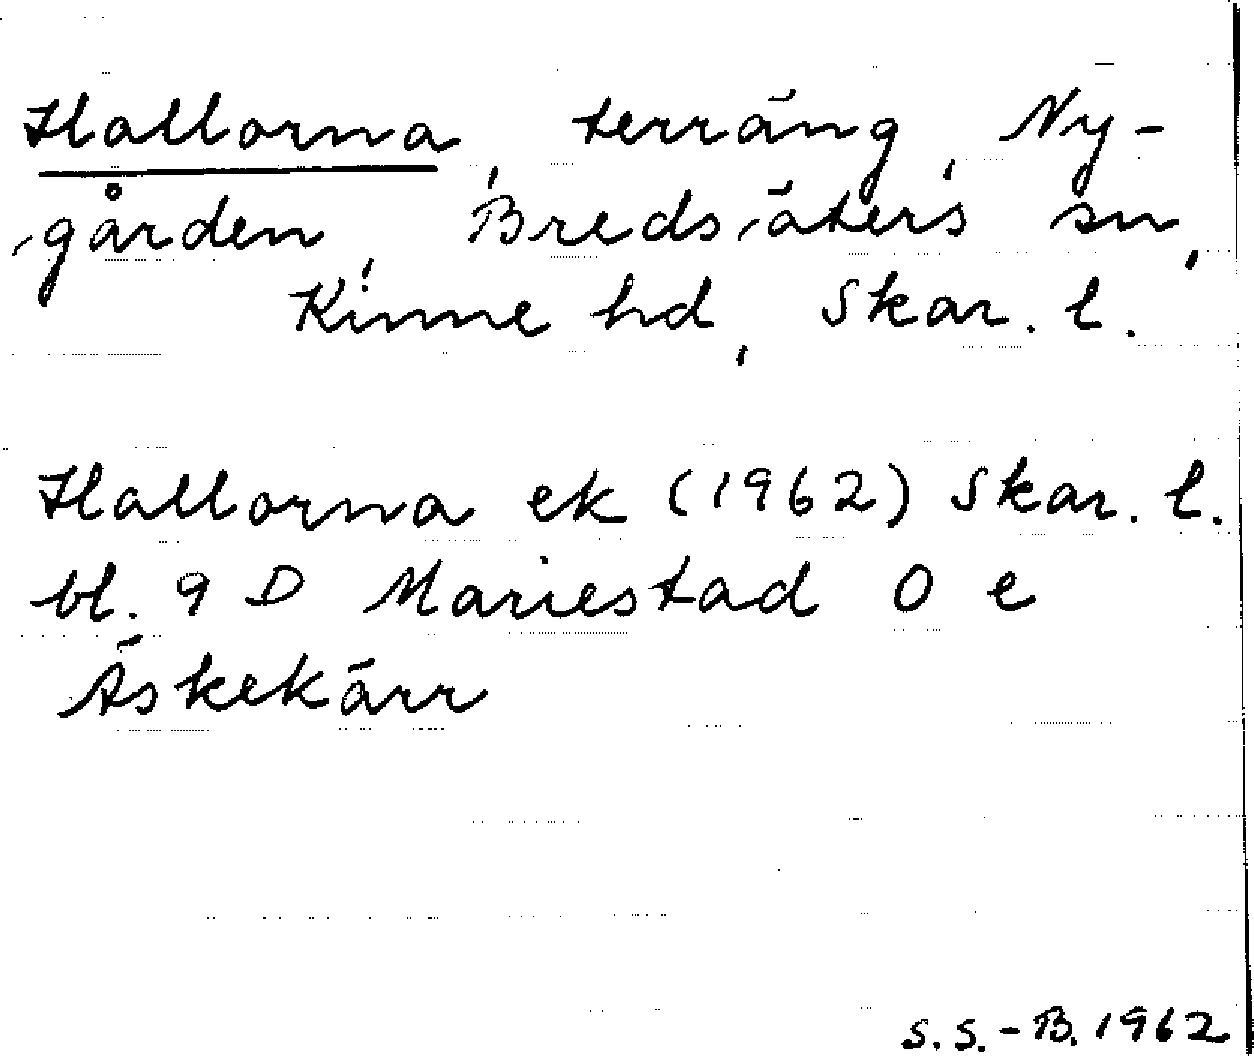 Hallorna, terräng, Ny-
gården, Bredsäters sn,
Kinne hd, Skar. l.
Hallorna ek (1962) Skar. l.
bl. 9 D Mariestad 0 e
Äskekärr
S.S.-B. 1962